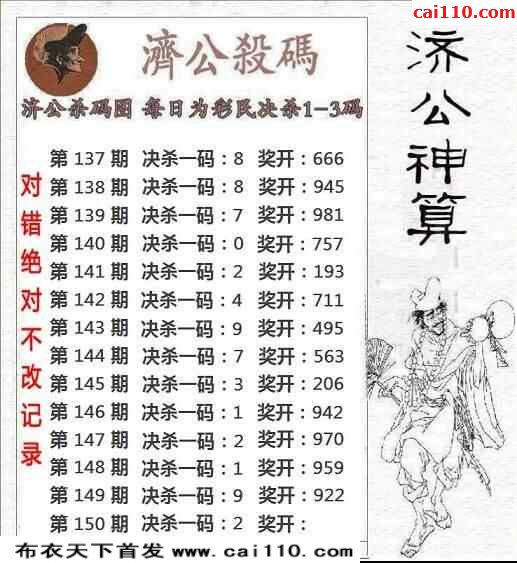 cai110.com
濟公殺碼
济公杀码图 每日为彩民决杀1-3码
济公神算
对错绝对不改记录
第 137 期 决杀一码：8 奖开：666
第 138 期 决杀一码：8 奖开：945
第 139 期 决杀一码：7 奖开：981
第 140 期 决杀一码：0 奖开：757
第 141 期 决杀一码：2 奖开：193
第 142 期 决杀一码：4 奖开：711
第 143 期 决杀一码：9 奖开：495
第 144 期 决杀一码：7 奖开：563
第 145 期 决杀一码：3 奖开：206
第 146 期 决杀一码：1 奖开：942
第 147 期 决杀一码：2 奖开：970
第 148 期 决杀一码：1 奖开：959
第 149 期 决杀一码：9 奖开：922
第 150 期 决杀一码：2 奖开：
布衣天下首发 www.cai110.com